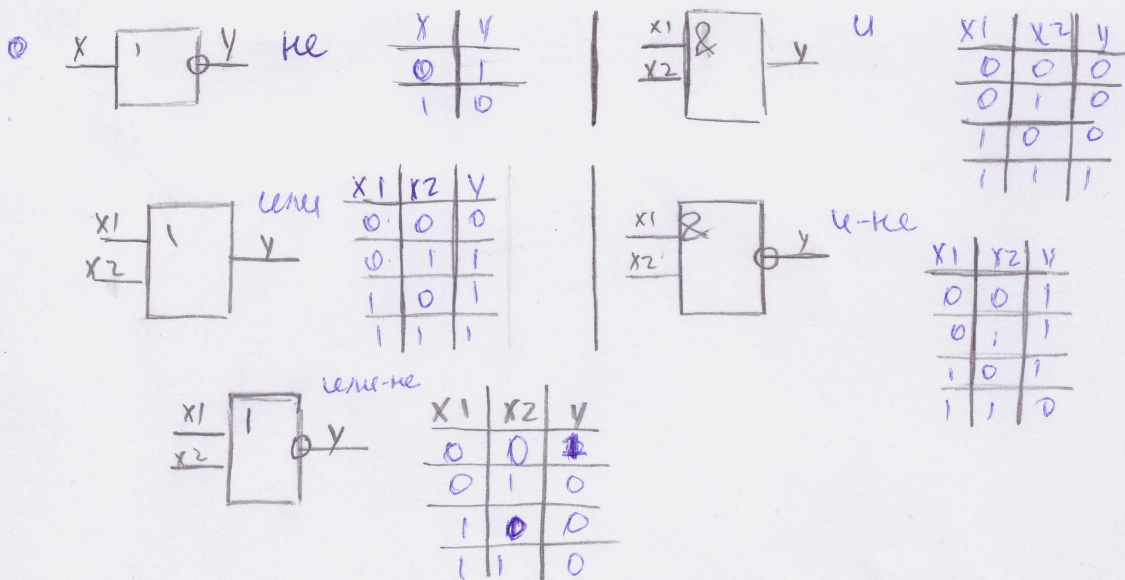 X 1 y не
X y
0 1
1 0
X1 X2 & y и
X1 X2 y
0 0 0
0 1 0
1 0 0
1 1 1
X1 X2 1 y или
X1 X2 y
0 0 0
0 1 1
1 0 1
1 1 1
X1 X2 & y и-не
X1 X2 y
0 0 1
0 1 1
1 0 1
1 1 0
X1 X2 1 y или-не
X1 X2 y
0 0 1
0 1 0
1 0 0
1 1 0